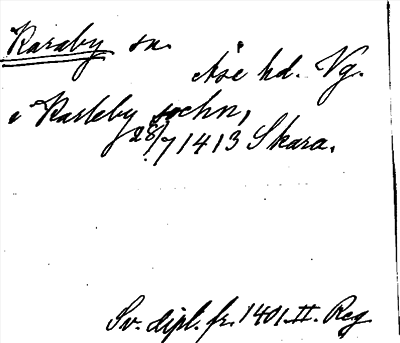 Karaby sn.
Åse hd. Vg.
i Karleby sochn,
28/7 1413 Skara.
Sv. dipl. fr. 1401. II. Reg